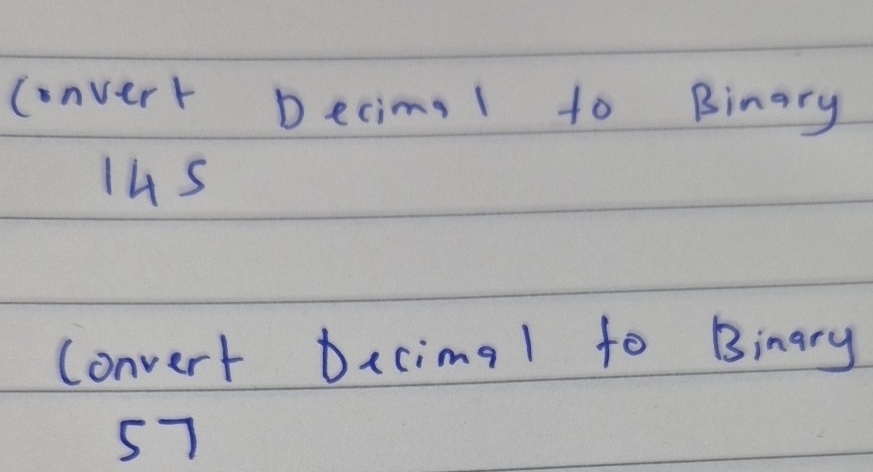 Convert Decimal to Binary
145
Convert Decimal to Binary
57